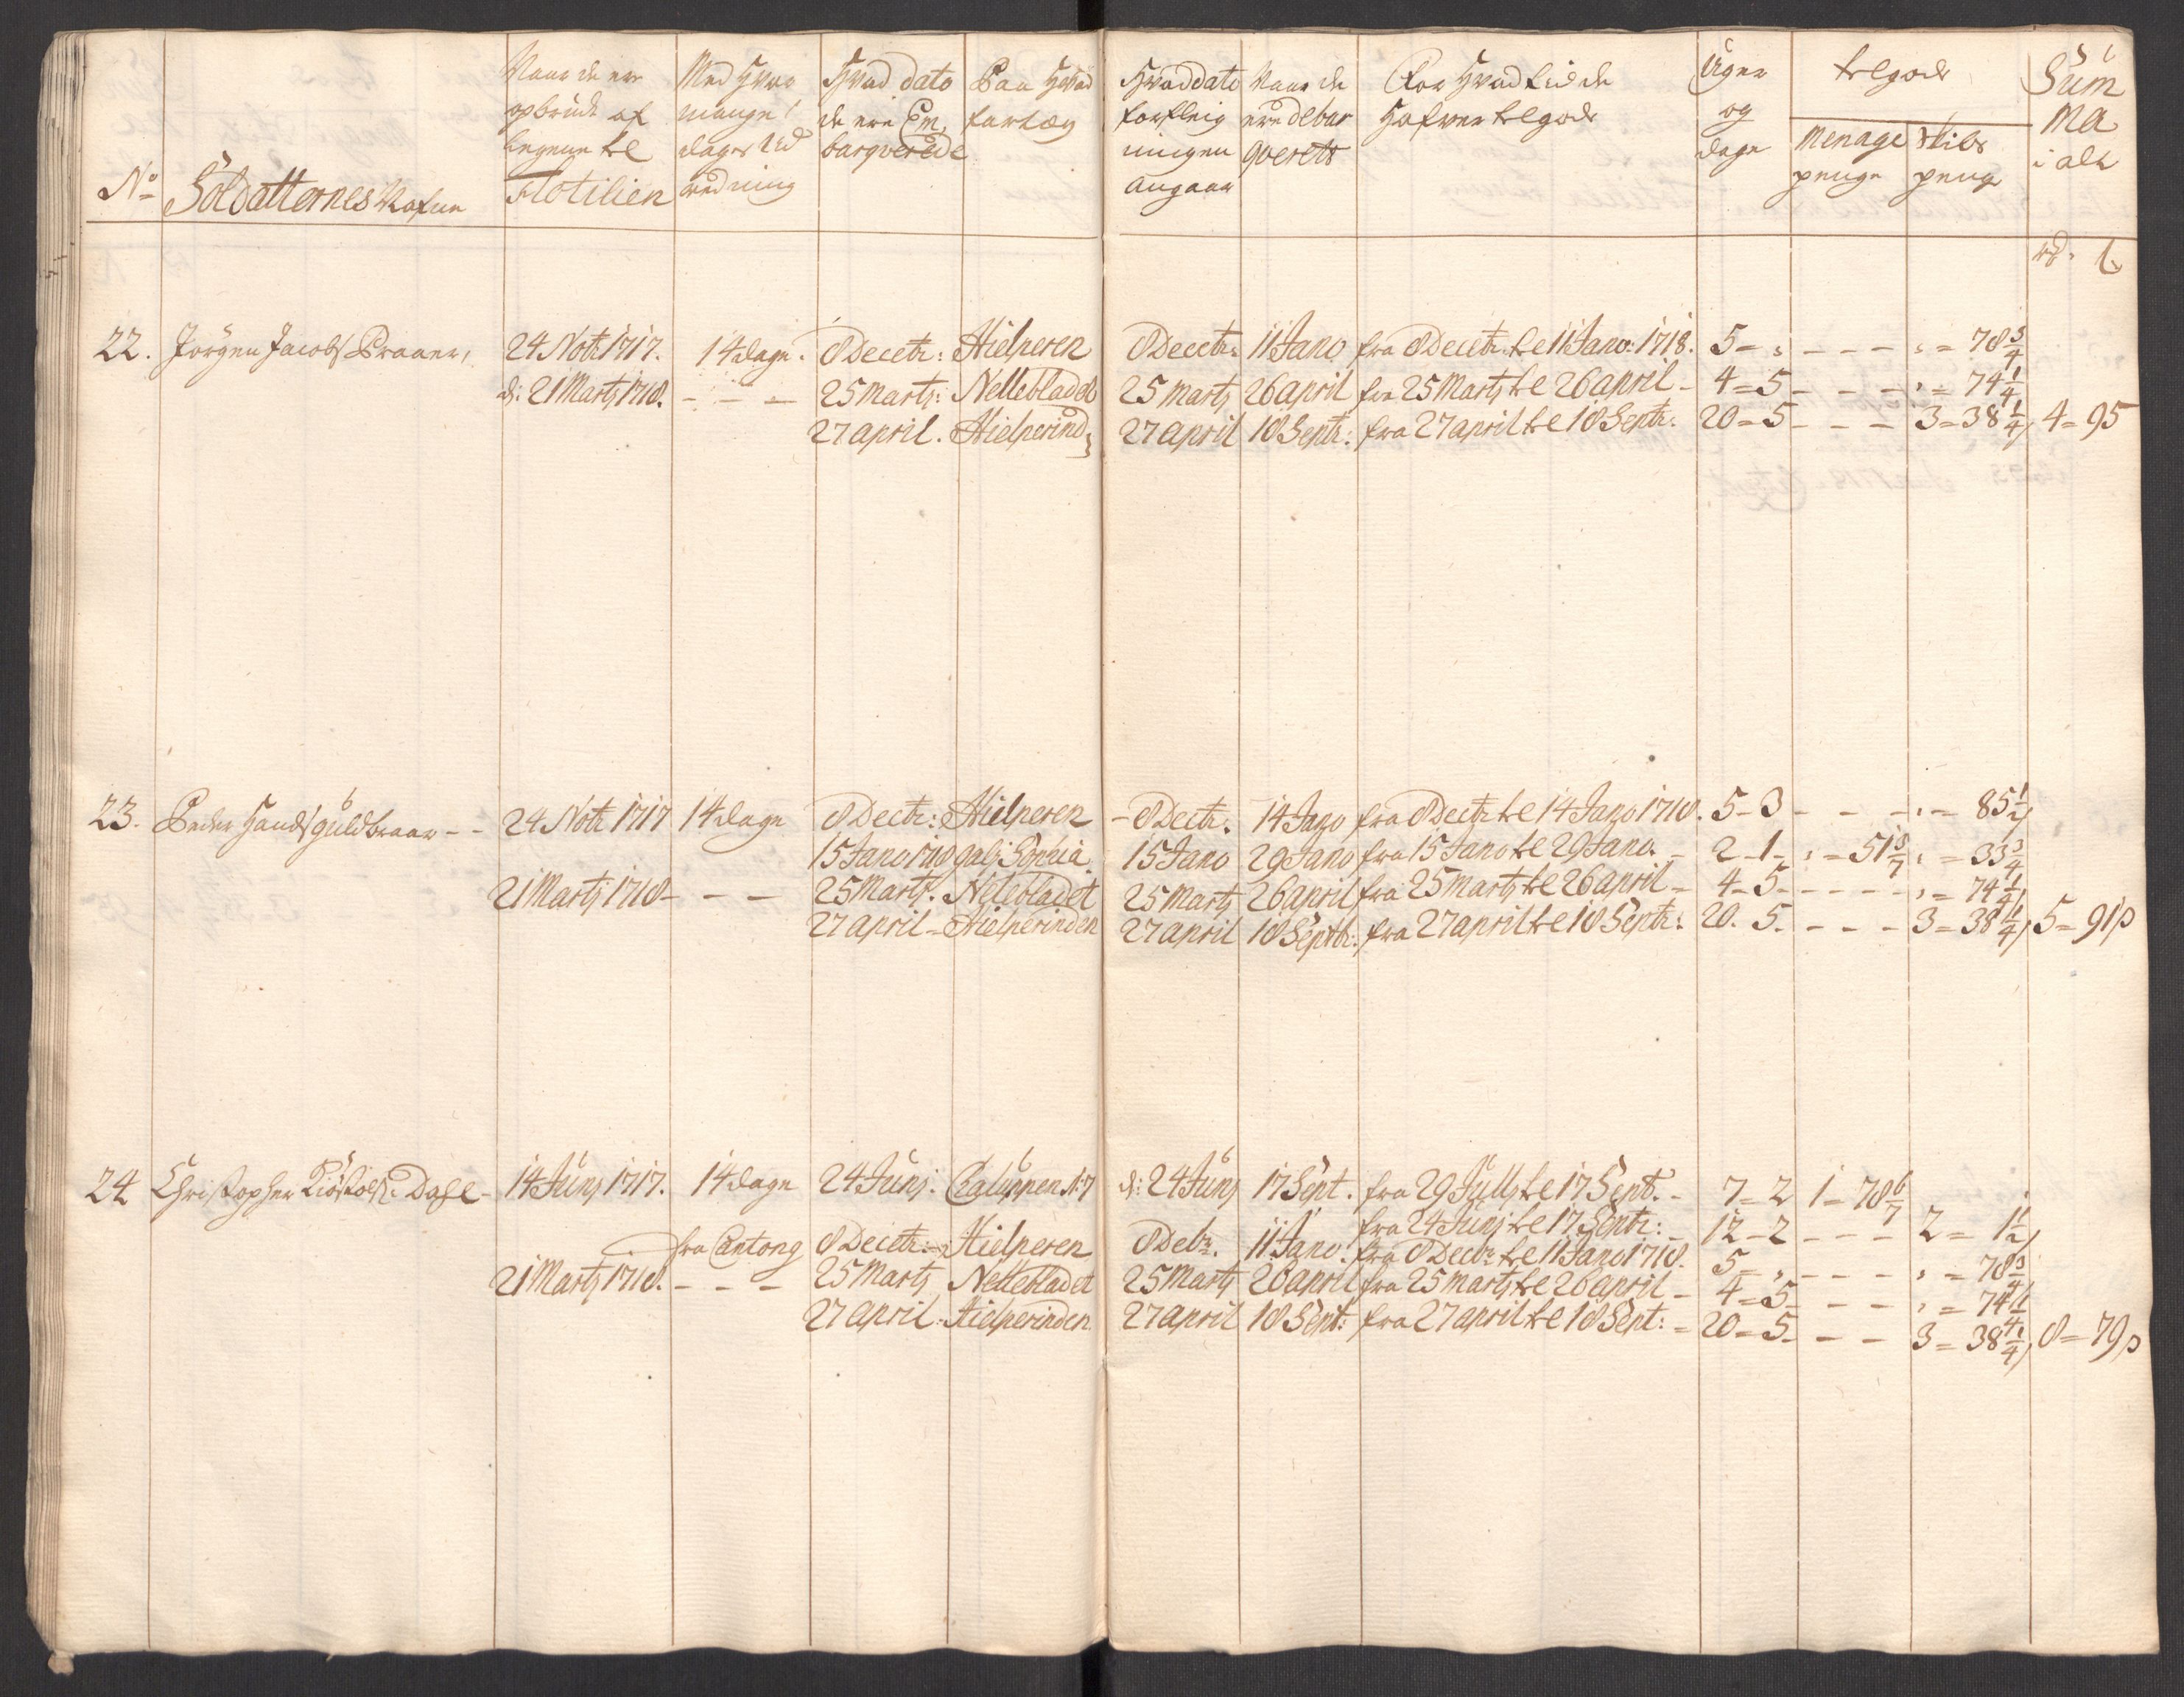 No Soldatternes Nafne
Naar de ere opbrudt af
legene til Flotilien
Med Hvor mange
dages Ud redning
Hvad dato de ere Em barqverede
Paa Hvad fartøy
Hvad dato forfleigningen angaar
Naar de ere debarqverett
For Hvad tid de Hafver tilgode
Uger og dage
tilgode
Menage penge
Skibs penge
Summa i alt
rd. s
22. Jørgen Jacobs Braaer, 24 Notr 1717. 14 dage. 8 Decetr: Hielperen 8 Decetr. 11 Jano fra 8 Decetr. til 11 Jano: 1718. 5 = , - - - , = 78 3/4
d: 21 Marty 1718. - - - 25 Marty: Nettebladet 25 Marty 26 april fra 25 Marty til 26 april - 4 = 5 - - - , = 74 1/4
27 april. Hielperind 27 april 18 Septr: fra 27 april til 18 Septr. 20 = 5 - - - 3 = 38 1/4 4 = 95
23. Peder Hands Guldbraar - - 24 Notr 1717 14 dage 8 Dectr: Hielperen - 8 Dectr. 14 Jano fra 8 Dectr til 14 Jano 1718. 5 - 3 - - - , = 85 1/2
15 Jano 1718 galj Sophia 15 Jano 29 Jano fra 15 Jano til 29 Jano. - 2 - 1 - , = 51 3/7 , = 33 3/4
21 Marty 1718 - - - 25 Marty. Nettebladet 25 Marty 26 april fra 25 marty til 26 april - 4 - 5 - - - - , = 74 1/4
27 april - Hielperinden 27 april 18 Septbr: fra 27 april til 18 Septr: 20. 5. - - - 3 = 38 1/4 5 = 91 s
24 Christopher Kiøstolß: Dahl - 14 Junj 1717. 14 dage 24 Junj. Chaluppen N: 7 d: 24 Junj 17 Sept. fra 29 Jully til 17 Sept. - 7 = 2 1 = 78 6/7
fra 24 Junj til 17 Septr: - 12 - 2 - - - 2 = 1 1/2
fra Cantong 8 Decetr: Hielperen 8 Debr. 11 Jano. fra 8 Decbr til 11 Jano 1718. 5 = , - - - , = 78 3/4
21 Marty 1718. - - - 25 Marty Nettebladet 25 Marty 26 april fra 25 marty til 26 april - 4 = 5 - - - , = 74 1/4
27 april. Hielperinden 27 april 18 Sept: fra 27 april til 18 Sept: - 20 = 5. - - 3 = 38 1/4 8 = 79 s